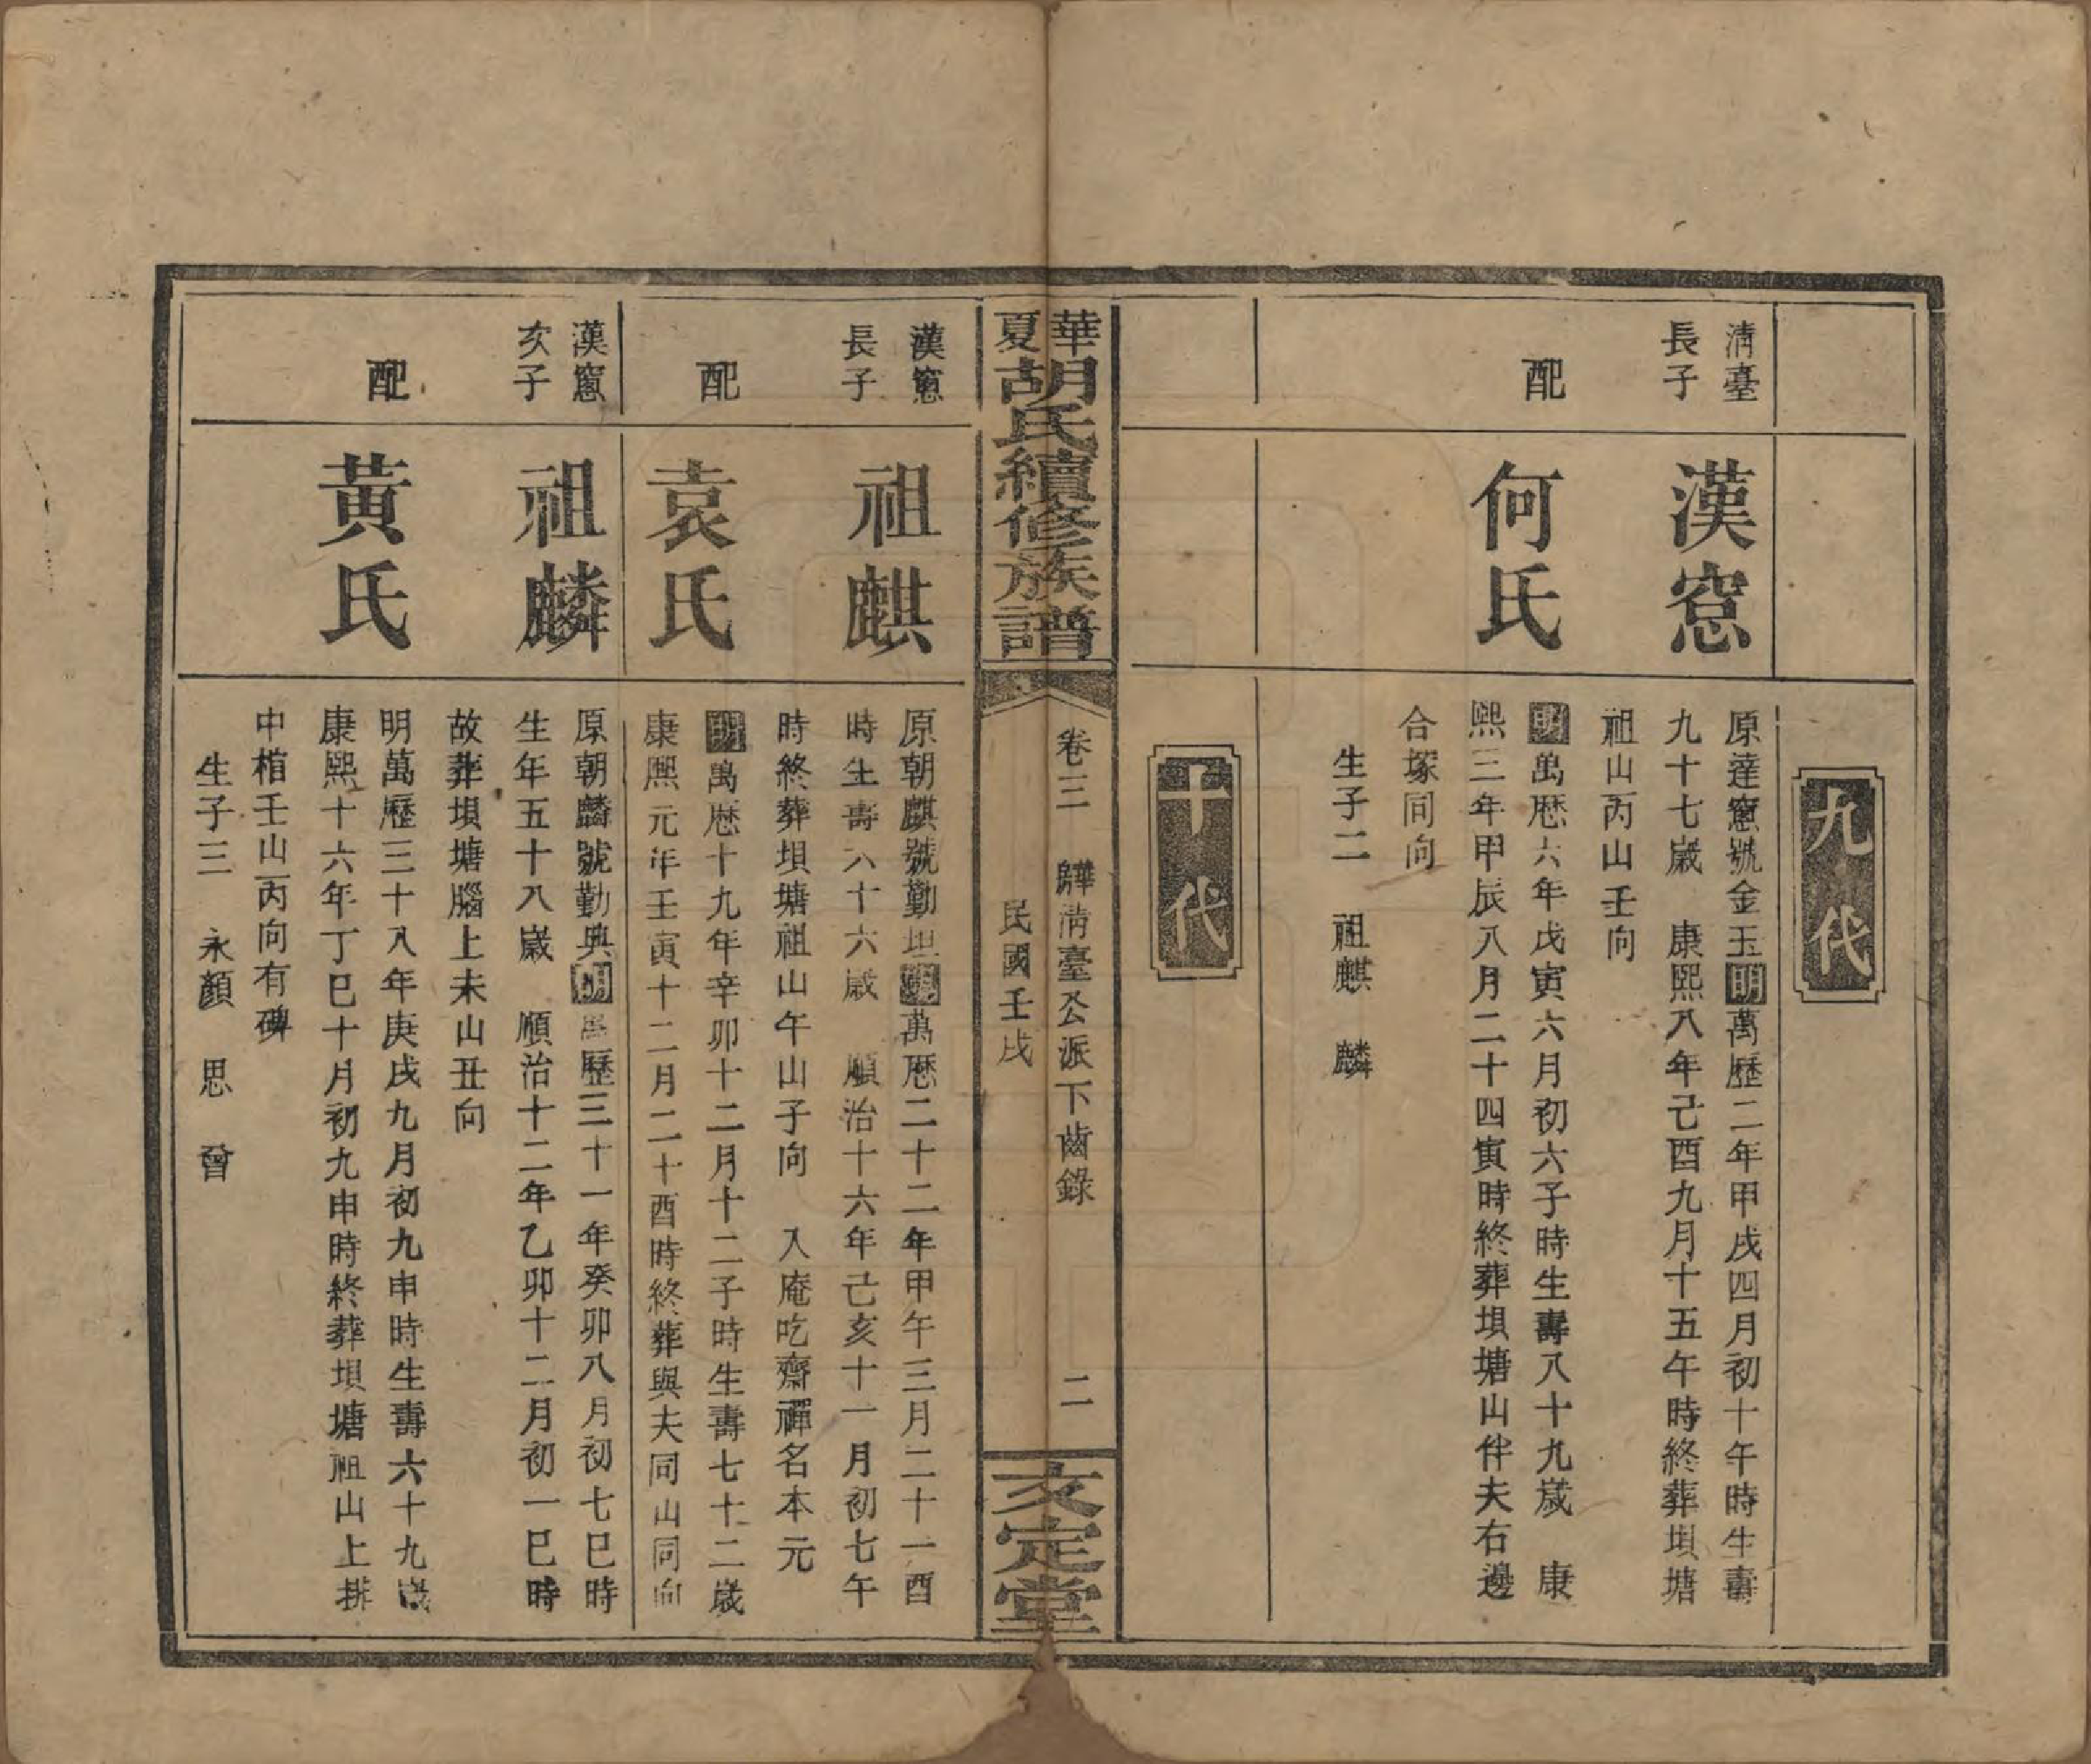 九代
清臺
長子
漢窓
原達窻號金玉明萬歷二年甲戌四月初十午時生壽
九十七歲　康熙八年己酉九月十五午時終葬垻塘
祖山丙山壬向
配
何氏
明萬歷六年戊寅六月初六子時生壽八十九歲　康
熙三年甲辰八月二十四寅時終葬垻塘山伴夫右邊
合塚同向
生子二　祖麒　麟
十代
華夏胡氏續修族譜
卷三　歸清臺公派下齒錄　二
民國壬戌
亥定堂
漢窻
長子
祖麒
原朝麒號勤坦明萬歷二十二年甲午三月二十一酉
時生壽六十六歲　順治十六年己亥十一月初七午
時終葬垻塘祖山午山子向　入庵吃齋禪名本元
配
袁氏
明萬歷十九年辛卯十二月十二子時生壽七十二歲
康熙元年壬寅十二月二十酉時終葬與夫同山同向
漢窻
次子
祖麟
原朝麟號勤典明萬歷三十一年癸卯八月初七巳時
生年五十八歲　順治十二年乙卯十二月初一巳時
故葬垻塘腦上未山丑向
配
黃氏
明萬歷三十八年庚戌九月初九申時生壽六十九歲
康熙十六年丁巳十月初九申時終葬垻塘祖山上排
中棺壬山丙向有碑
生子三　永顏　思　曾